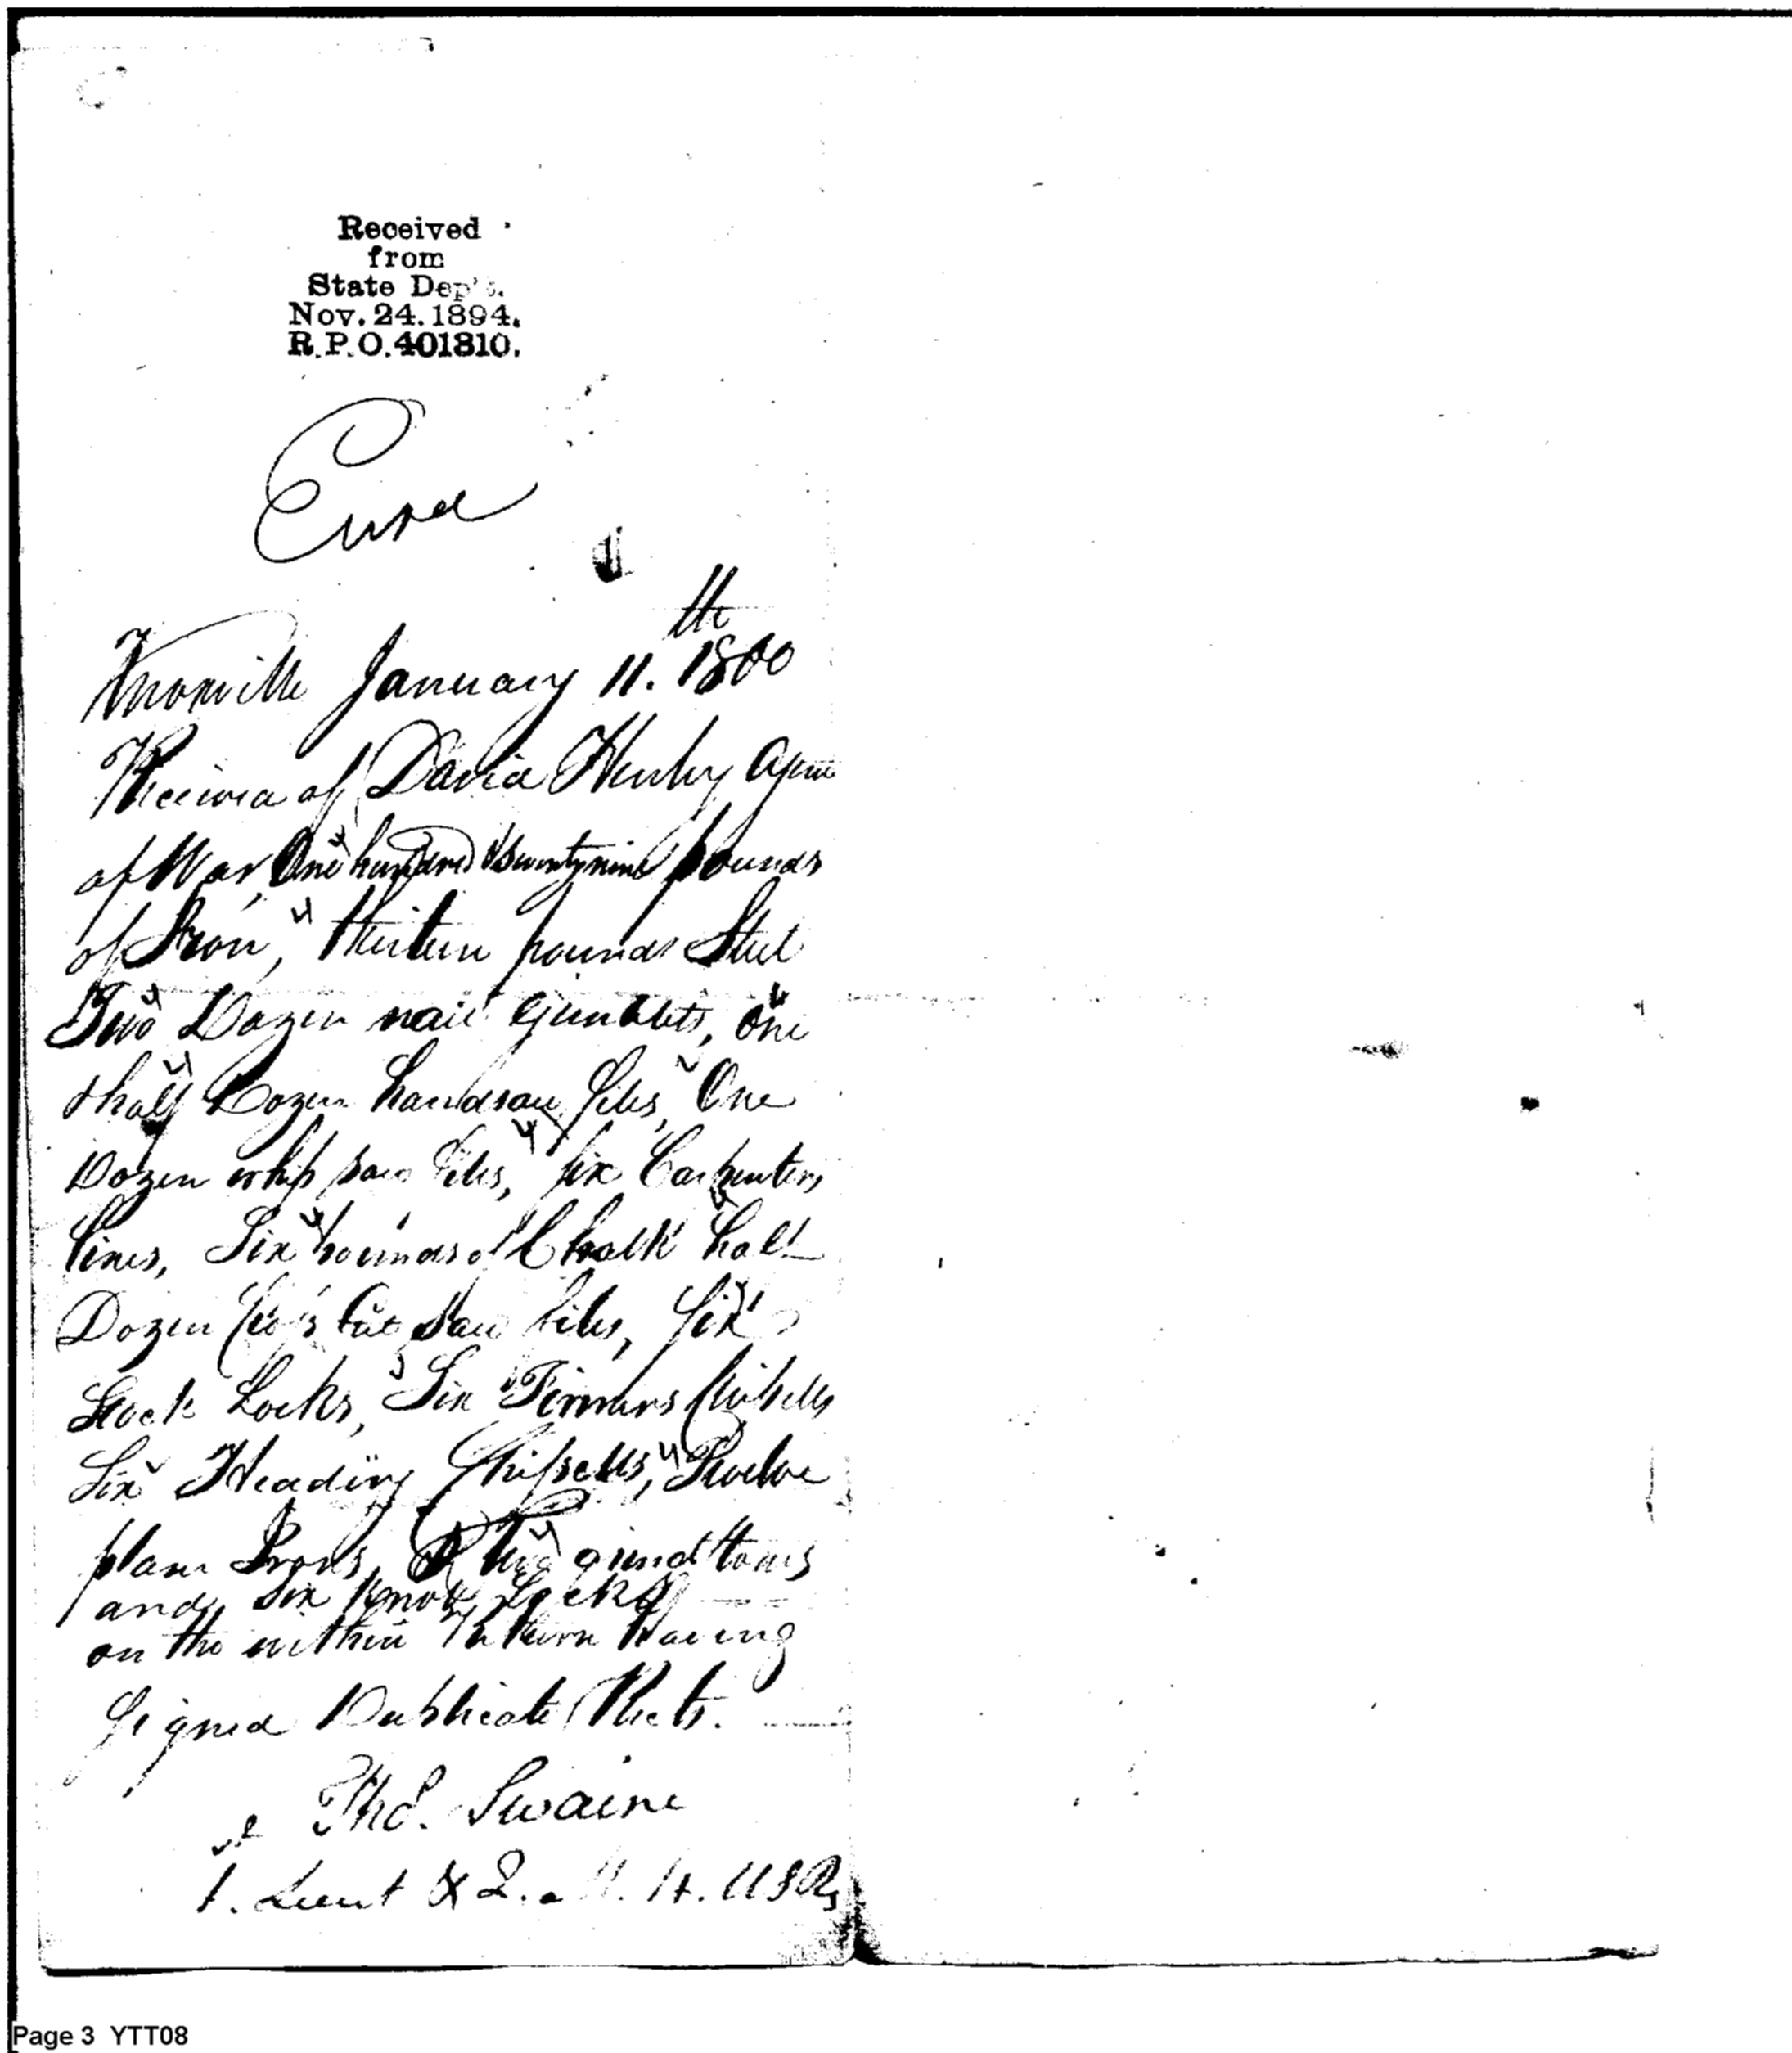 Received
from
State Dep't.
Nov. 24. 1894.
R.P.O. 401810.
Knoxville January 11.th 1800
Received of David Henley Agent
of War, One hundred & twenty nine pounds
of Iron, thirteen pounds Steel
Two Dozen nail Gimblets, One
& half Dozen handsaw files, One
Dozen whip saw files, Six Carpenters
lines, Six pounds of Chalk half
Dozen Cross Cut Saw files, Six
Stock Locks, Six Firmers Chisells
Six Heading Chissells, Twelve
plane Irons, two grindstones
and Six Knob Locks
on the within Return having
Signed Duplicate Rects.
Tho.s Swaine
1. Lieut & Q. M. 4. US Rg
Page 3 YTT08